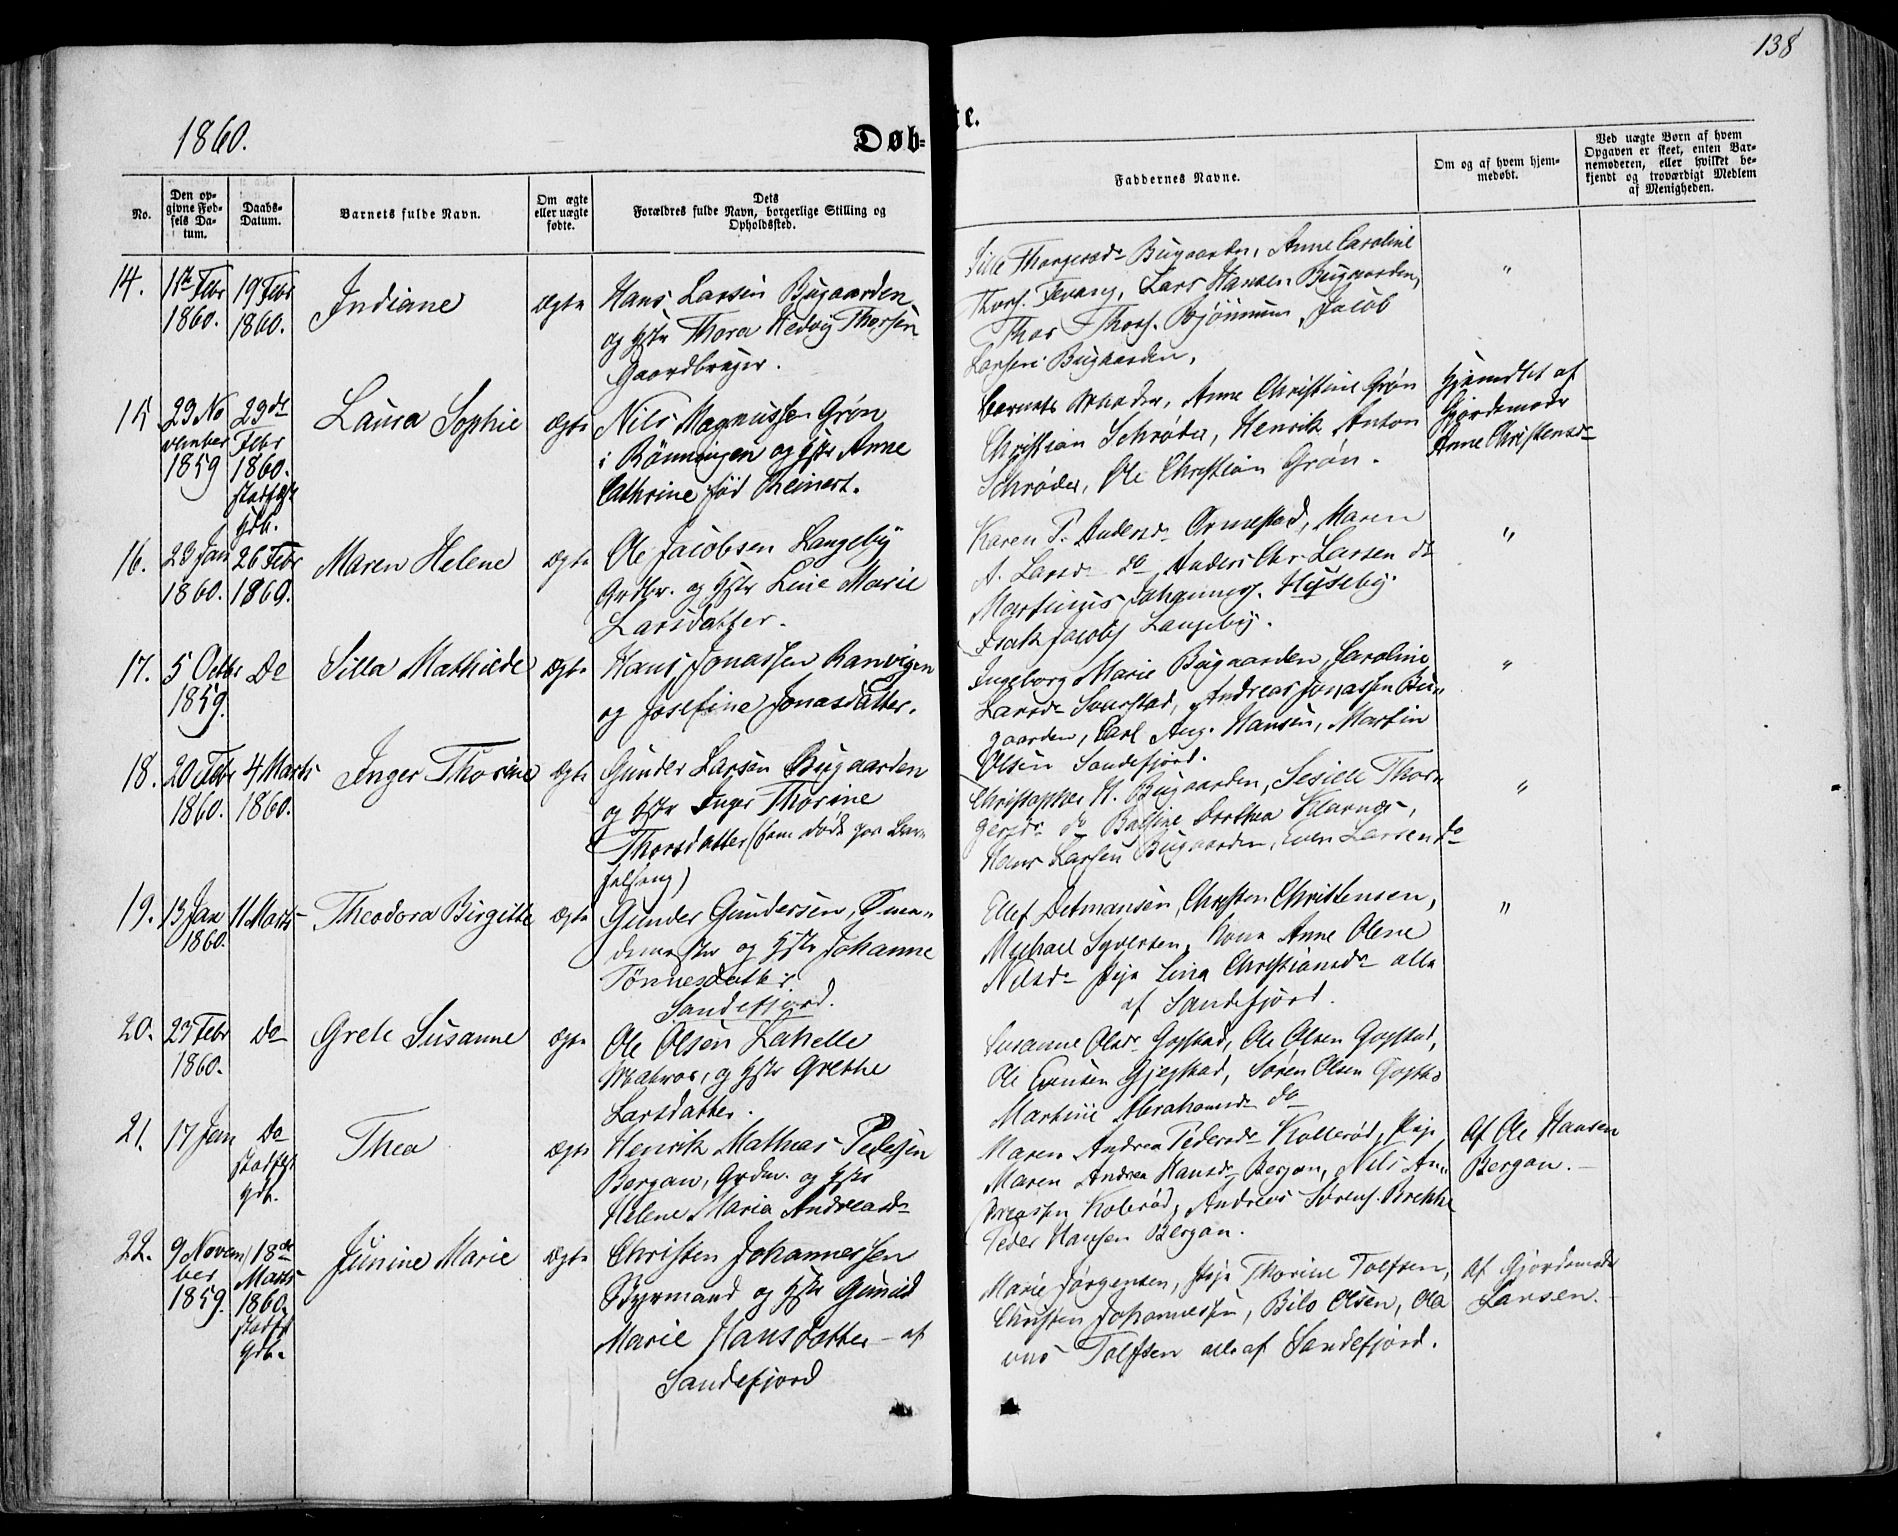 138
1860.
Døb-
te.
No.
Den op-
givne Fød-
sels Da-
tum.
Daabs-
Datum.
Barnets fulde Navn.
Om ægte
eller uægte
fødte.
Dets
Forældres fulde Navn, borgerlige Stilling og
Opholdssted.
Faddernes Navne.
Om og af hvem hjem-
medøbt.
Ved uægte Børn af hvem
Opgaven er skeet, enten Bar-
nemoderen, eller hvilket be-
kjendt og troværdigt Medlem
af Menigheden.
14.
1ste Febr
1860.
19 Febr
1860.
Indiane
ægte
Hans Larsen Bugaarden
og Hstr Thora Hedvig Thorsen
Gaardbruger.
Bugaarden, Anne Caroline
Thors. Fevang, Lars Hansen Bugaarden,
Thor Thors. Bjønnum, Jacob
Larsen Bugaarden,
"
15
29 No
vember
1859
29de
Febr
1860.
stadfæst
gdb.
Laura Sophie
ægte
Nils Magnussen Grøn
i Rønningen og Hstr Anne
Cathrine fød Reinert.
Barnets Moder, Anne Christine Grøn
Christian Schrøder, Henrik Anton
Schrøder, Ole Christian Grøn.
Hjemdbt af
Gjordemoder
Anne Christensd
16.
28 Jan
1860.
26 Febr
1860.
Maren Helene
ægte
Ole Jacobsen Langeby
Grdbr. og Hstr Line Marie
Larsdatter.
Karen P. Andersd Ormestad, Maren
A. Larsd do Anders Chr. Larsen do
Martinius Johannes. Hyseby.
Isak Jacobs Langeby.
"
17.
5 Octbr
1859.
Do
Silla Mathilde
ægte
Hans Jonassen Ranvigen
og Josefine Jonasdatter.
Ingeborg Marie Bugaarden, Caroline
Larsd Sverstad, Andreas Jonassen Bu-
gaarden, Carl Aug. Hansen, Martin
Olsen Sandefjord.
"
18.
20 Febr
1860.
4 Marts
1860.
Inger Thorine
ægte
Gunder Larsen Bugaarden
og Hstr Inger Thorine
Thorsdatter (som døde paa Bar-
selseng)
Christopher H. Bugaarden, Sesille Thor-
gersd do Dorthea Klavnæs,
Hans Larsen Bugaarden, Even Larsen do
"
19.
13 Jan
1860.
11 Marts
Theodora Birgitte
ægte
Gunder Gundersen,
og Hstr Johanne
Tønnesdatter.
Sandefjord.
Ellef Detmansen, Christen Christensen,
Michael Syversen, Kone Anne Olene
Nilsd Pige Lina Christiansd alle
af Sandefjord.
"
20.
27 Febr
1860.
Do
Grete Susanne
ægte
Ole Olsen Lahelle
Matros, og Hstr Grethe
Larsdatter.
Susanne Olsd Gogstad, Ole Olsen Gogstad,
Ole Evensen Gjegstad, Søren Olsen Gogst
Martine Abrahamsd do
21.
17 Jan
Do
stadfæst
gdb.
Thea
ægte
Henrik Mathias Pedersen
Bergan, Grdm. og Hstr
Helene Maria Andreasd
Maren Andrea Pedersd Kollerød, Pige
Maren Andrea Hansd Bergan, Nils An-
dreassen Kolerød, Andreas Sørens. Brekke
Peder Hansen Bergan.
Af Ole Hansen
Bergan.
22.
9 Novem
ber
1859.
18de
Marts
1860
stadfæst
gdb.
Junine Marie
ægte
Christen Johannessen
Styrmand og Hstr Gunild
Marie Hansdatter - af
Sandefjord
Marie Jørgensen, Pige Thorine Tolfsen,
Christen Johannessen, Nils Olsen, Ola
vus Tolfsen alle af Sandefjord.
Af Gjordemoder
Larsen.